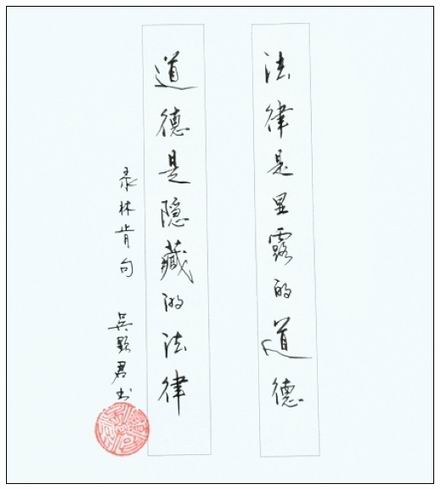 法律是显露的道德
道德是隐藏的法律
录林肯句
君书